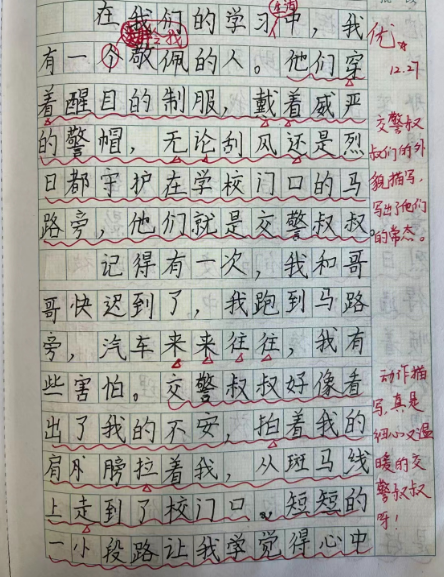 生活
在我们的学习中，我
令我
有一个敬佩的人。他们穿
着醒目的制服，戴着威严
的警帽，无论刮风还是烈
日都守护在学校门口的马
路旁，他们就是交警叔叔。
记得有一次，我和哥
哥快迟到了，我跑到马路
旁，汽车来来往往，我有
些害怕。交警叔叔好像看
出了我的不安，拍着我的
肩膀拉着我，从斑马线
上走到了校门口。短短的
一小段路让我学觉得心中
优
12.27
交警叔
叔们的外
貌描写，
写出了他们
的常态。
动作描
写，真是
细心又温
暖的交
警叔叔
呀！